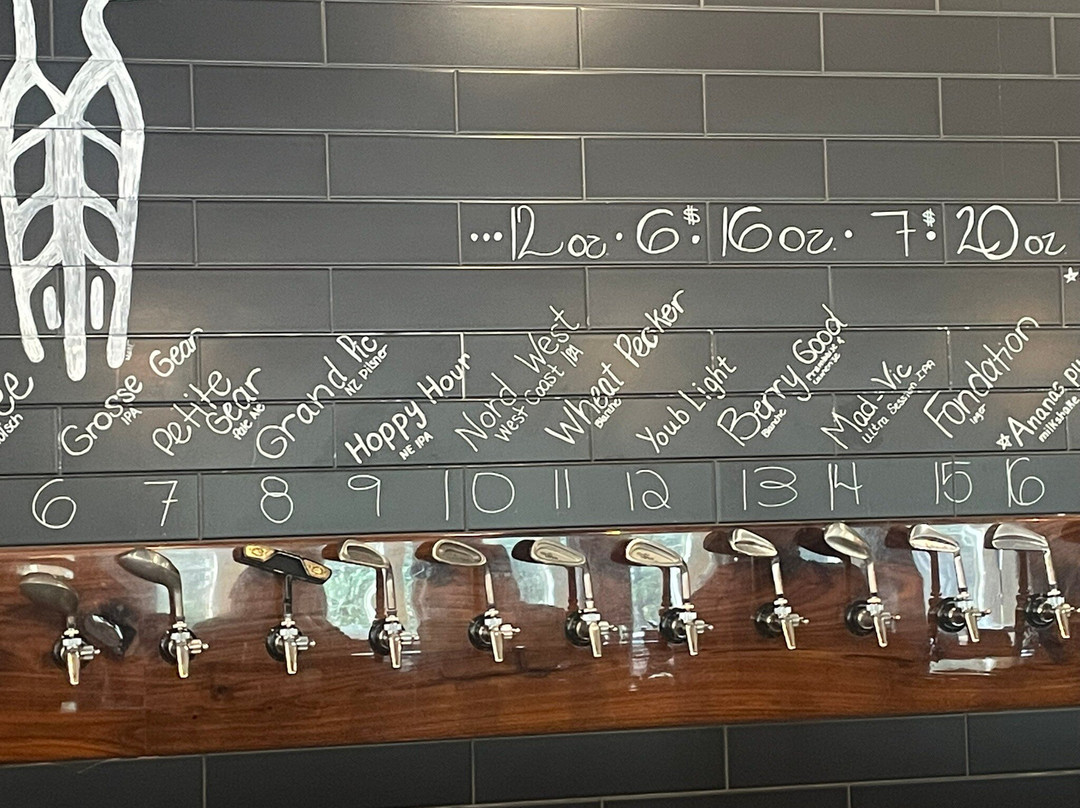 ...12 oz. 6$. 16 oz. 7$. 20 oz
Grosse Gear
IPA
Petite
Gear
Pale Ale
Grand Pic
NZ Pilsner
Hoppy Hour
NE IPA
Nord West
West Coast IPA
Wheat Pecker
Blanche
Youb Light
Berry Good
Blanche
Mad-Vic
Ultra Session IPA
Fondation
Lager
Ananas
milkshake
6 7 8 9 10 11 12 13 14 15 16